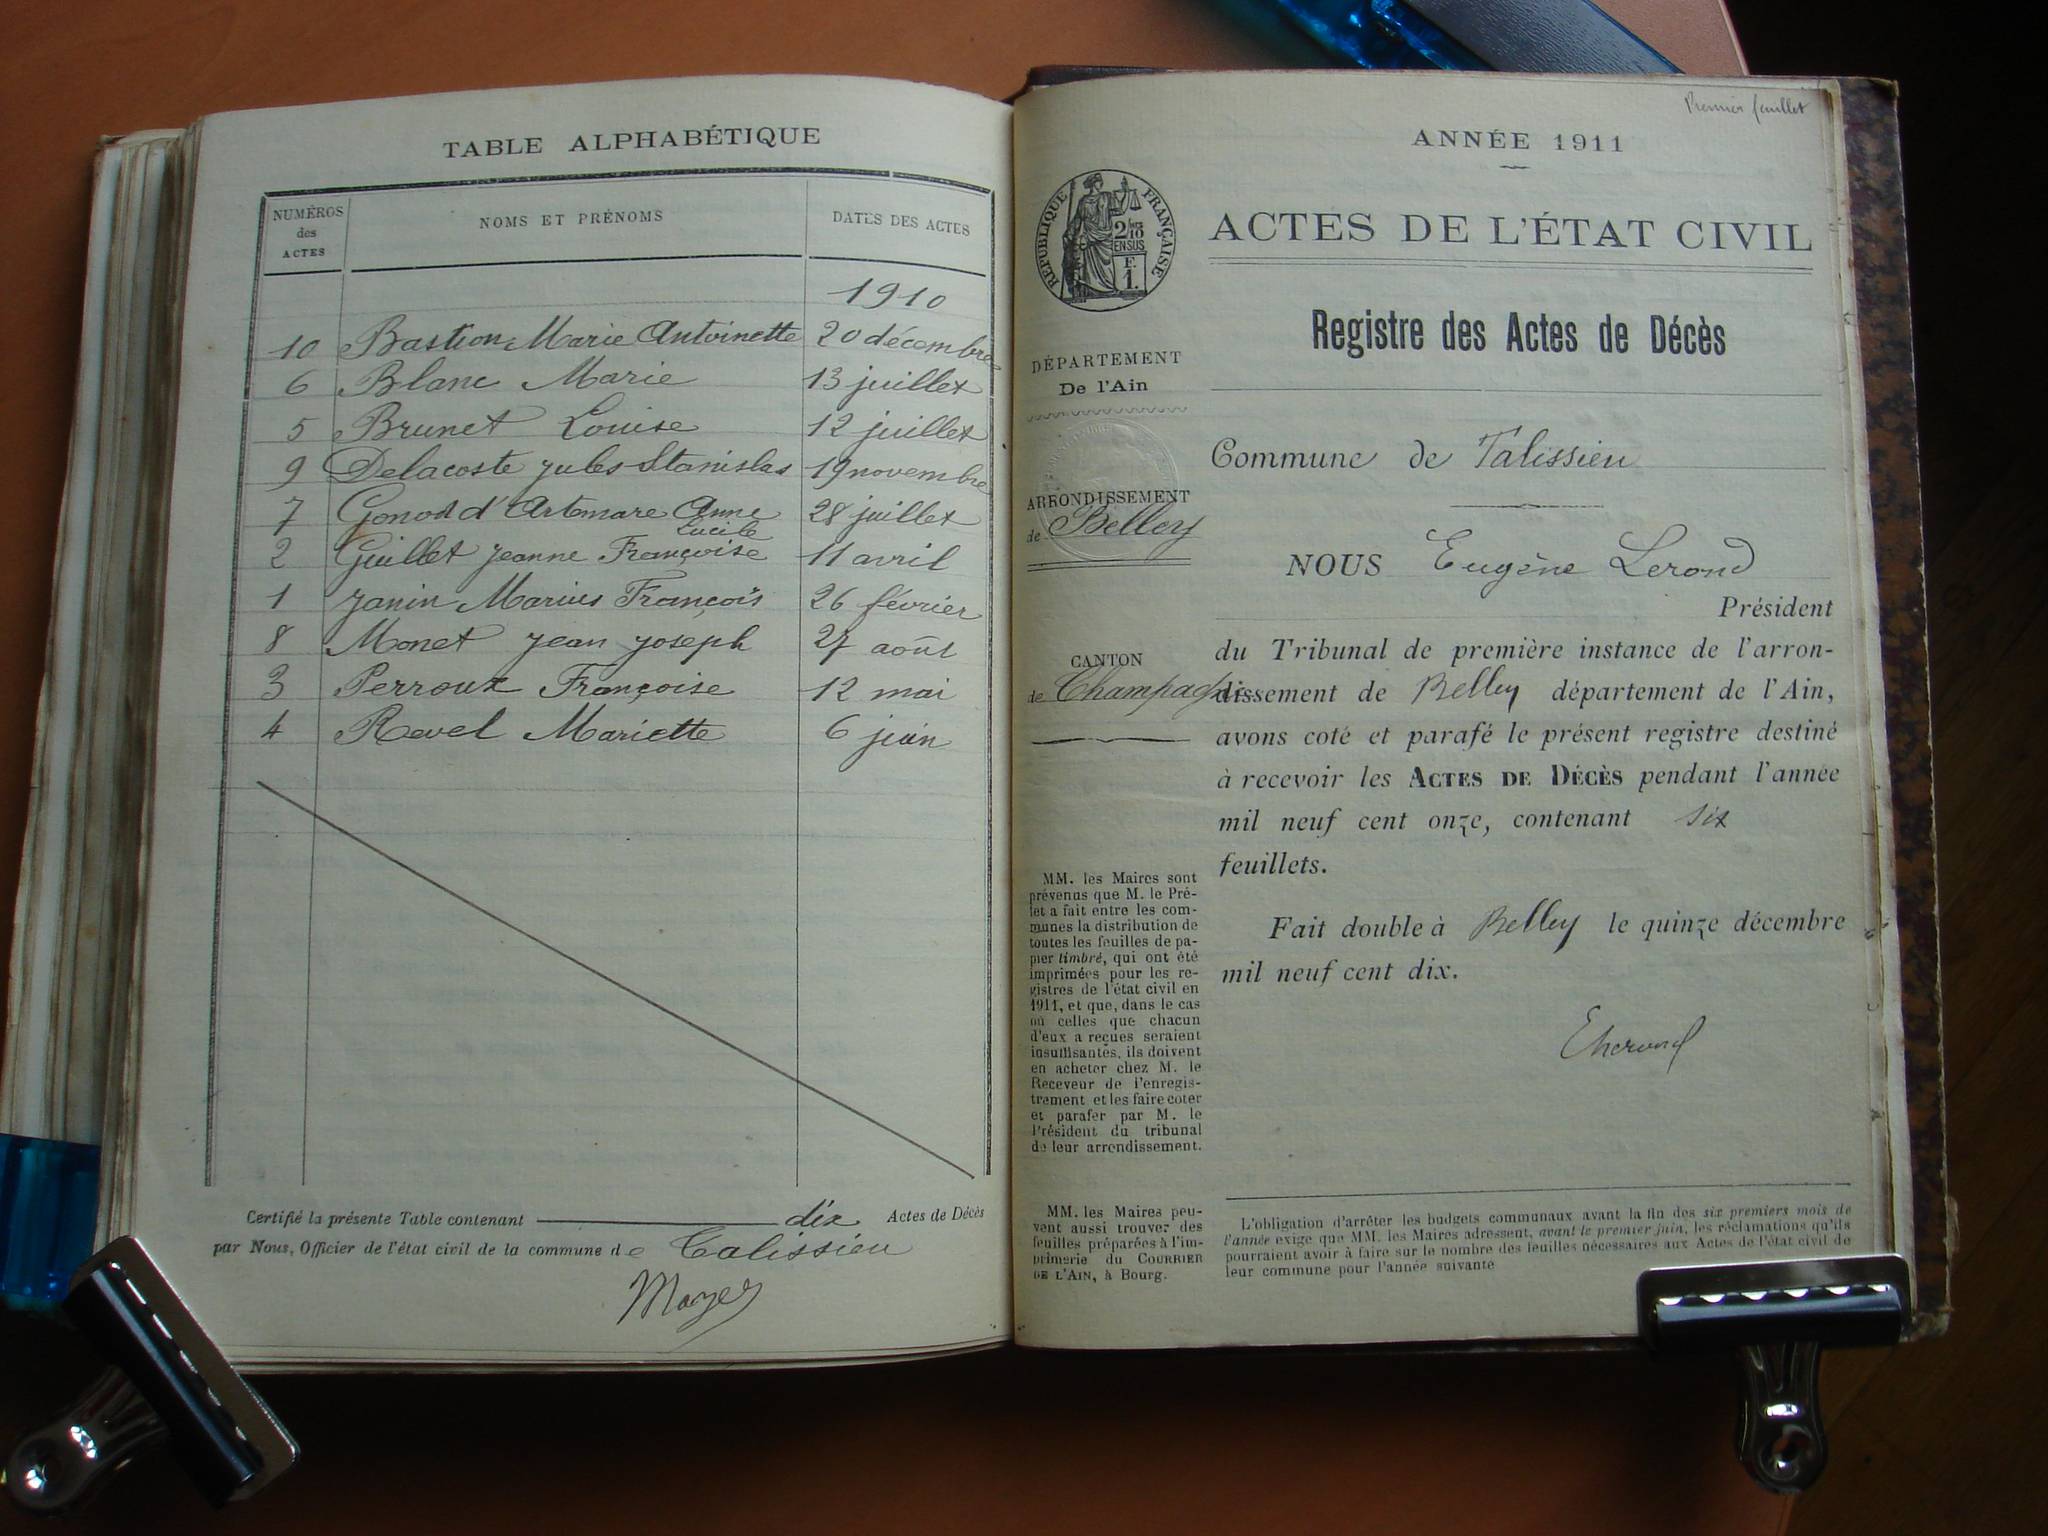 TABLE ALPHABÉTIQUE
NUMÉROS des ACTES NOMS ET PRÉNOMS DATES DES ACTES
1910
10 Bastion Marie Antoinette 20 décembre
6 Blanc Marie 13 juillet
5 Brunet Louise 12 juillet
9 Delacoste Jules Stanislas 19 novembre
7 Gonod d'Artemare Anne Lucile 28 juillet
2 Guillet Jeanne Françoise 11 avril
1 Janin Marius François 26 février
8 Monet Jean Joseph 27 août
3 Perroux Françoise 12 mai
4 Revel Mariette 6 juin
Certifié la présente Table contenant dix Actes de Décès
par Nous, Officier de l'état civil de la commune de Talissieu
Premier feuillet
ANNÉE 1911
RÉPUBLIQUE FRANÇAISE
2/10
EN SUS
F.
1.
ACTES DE L'ÉTAT CIVIL
Registre des Actes de Décès
DÉPARTEMENT
De l'Ain
ARRONDISSEMENT
de Belley
CANTON
de Champagne
Commune de Talissieu
NOUS Eugène Lerond
Président
du Tribunal de première instance de l'arron-
dissement de Belley département de l'Ain,
avons coté et parafé le présent registre destiné
à recevoir les ACTES DE DÉCÈS pendant l'année
mil neuf cent onze, contenant six
feuillets.
Fait double à Belley le quinze décembre
mil neuf cent dix.
MM. les Maires sont
prévenus que M. le Pré-
fet a fait entre les com-
munes la distribution de
toutes les feuilles de pa-
pier timbré, qui ont été
imprimées pour les re-
gistres de l'état civil en
1911, et que, dans le cas
où celles que chacun
d'eux a reçues seraient
insuffisantes, ils doivent
en acheter chez M. le
Receveur de l'enregis-
trement et les faire coter
et parafer par M. le
Président du tribunal
de leur arrondissement.
MM. les Maires peu-
vent aussi trouver des
feuilles préparées à l'im-
primerie du COURRIER
DE L'AIN, à Bourg.
L'obligation d'arrêter les budgets communaux avant la fin des six premiers mois de
l'année exige que MM. les Maires adressent, avant le premier juin, les réclamations qu'ils
pourraient avoir à faire sur le nombre des feuilles nécessaires aux Actes de l'état civil de
leur commune pour l'année suivante